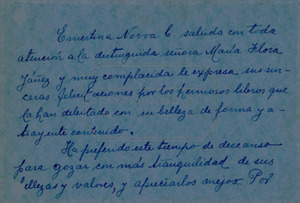 Ernestina Norva C saluda con toda
atención a la distinguida señora María Flora
Yáñez y muy complacida le expresa sus sin-
ceras felicitaciones por los hermosos libros que
la han deleitado con su belleza de forma y a-
trayente contenido.
Ha preferido este tiempo de descanso
para gozar con más tranquilidad de sus
llezas y valores, y apreciarlos mejor. Por